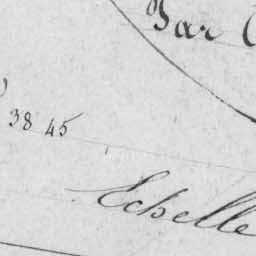 Par
38 45
Echelle